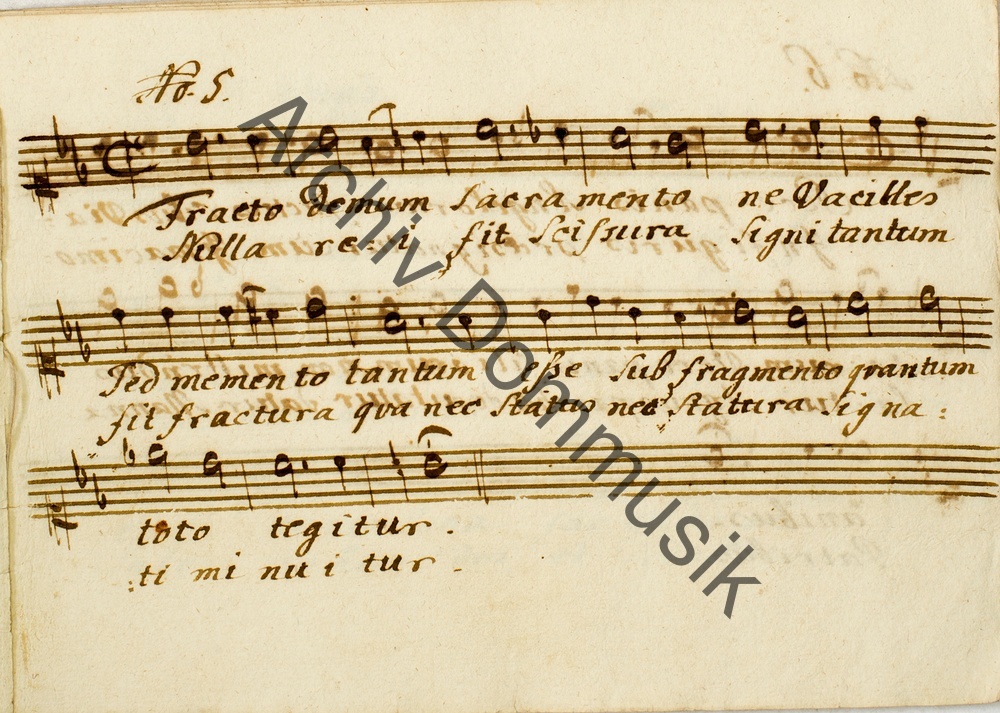 No. 5.
Fracto Demum Sacramento ne Vacilles
Nulla re: i fit Scissura Signi tantum
Sed memento tantum esse sub fragmento qvantum
fit fractura qva nec Status nec Statura Signa:
toto tegitur.
:ti mi nu i tur.
Archiv Dommusik